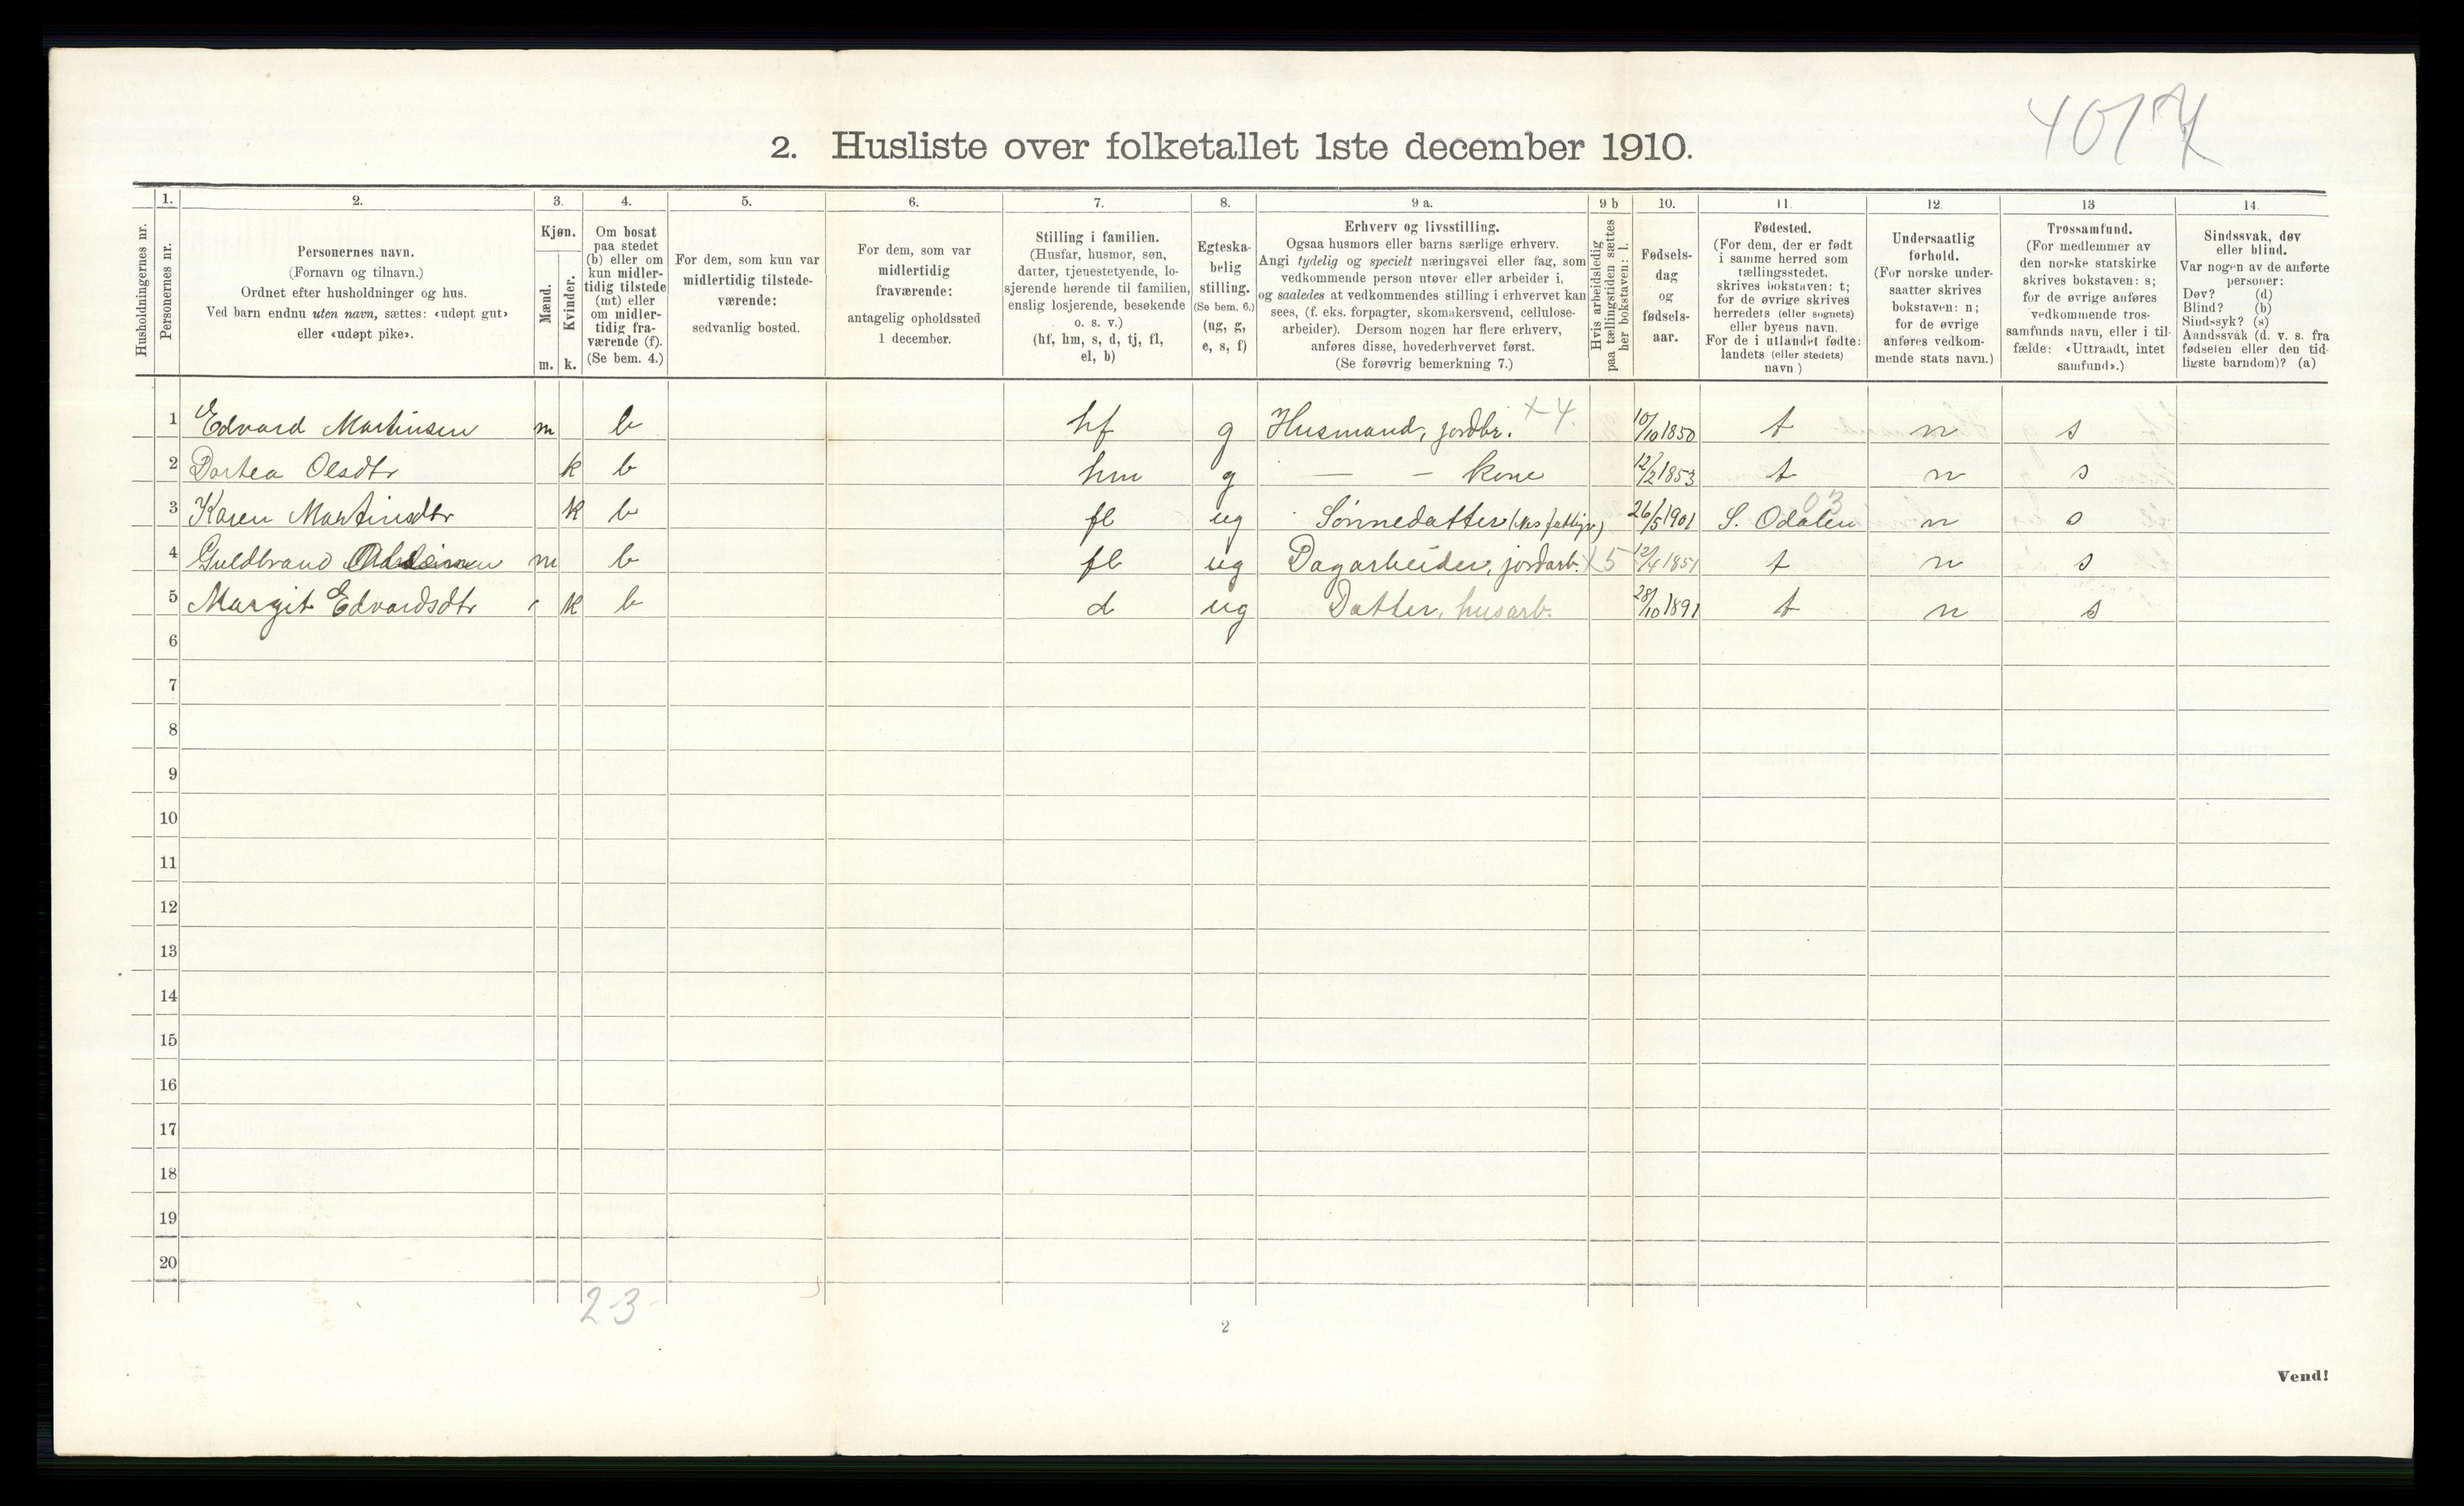 4017
2. Husliste over folketallet 1ste december 1910.
Husholdningernes nr.
1. Personernes nr.
2. Personernes navn.
(Fornavn og tilnavn.)
Ordnet efter husholdninger og hus.
Ved barn endnu uten navn, sættes: «udøpt gut»
eller «udøpt pike».
3. Kjøn.
Mænd. m.
Kvinder. k.
4. Om bosat
paa stedet
(b) eller om
kun midler-
tidig tilstede
(mt) eller
om midler-
tidig fra-
værende (f).
(Se bem. 4.)
5. For dem, som kun var
midlertidig tilstede-
værende:
sedvanlig bosted.
6. For dem, som var
midlertidig
fraværende:
antagelig opholdssted
1 december.
7. Stilling i familien.
(Husfar, husmor, søn,
datter, tjenestetyende, lo-
sjerende hørende til familien,
enslig losjerende, besøkende
o. s. v.)
(hf, hm, s, d, tj, fl,
el, b)
8. Egteska-
belig
stilling.
(Se bem. 6.)
(ug, g,
e, s, f)
9 a. Erhverv og livsstilling.
Ogsaa husmors eller barns særlige erhverv.
Angi tydelig og specielt næringsvei eller fag, som
vedkommende person utøver eller arbeider i,
og saaledes at vedkommendes stilling i erhvervet kan
sees, (f. eks. forpagter, skomakersvend, cellulose-
arbeider). Dersom nogen har flere erhverv,
anføres disse, hovederhvervet først.
(Se forøvrig bemerkning 7.)
9 b Hvis arbeidsledig
paa tællingstiden sættes
her bokstaven: l.
10. Fødsels-
dag
og
fødsels-
aar.
11. Fødested.
(For dem, der er født
i samme herred som
tællingsstedet,
skrives bokstaven: t;
for de øvrige skrives
herredets (eller sognets)
eller byens navn.
For de i utlandet fødte:
landets (eller stedets)
navn )
12. Undersaatlig
forhold.
(For norske under-
saatter skrives
bokstaven: n;
for de øvrige
anføres vedkom-
mende stats navn.)
13 Trossamfund.
(For medlemmer av
den norske statskirke
skrives bokstaven: s;
for de øvrige anføres
vedkommende tros-
samfunds navn, eller i til-
fælde: «Uttraadt, intet
samfund».)
14. Sindssvak, døv
eller blind.
Var nogen av de anførte
personer:
Døv? (d)
Blind? (b)
Sindssyk? (s)
Aandssvak (d. v. s. fra
fødselen eller den tid-
ligste barndom)? (a)
1 Edvard Martinsen m b hf g Husmand, jordbr. X 4. 10/10 1850 t n s
2 Dortea Olsdtr k b hm g — — kone 12/2 1853 t n s
3 Karen Martinsdtr k b fl ug Sønnedatter 26/5 1901 S. Odalen 03 n s
4 Guldbrand m b fl ug Dagarbeider, jordarb. X5 12/4 1851 t n s
5 Margit Edvardsdtr k b d ug Datter, husarb. 28/10 1891 t n s
6
7
8
9
10
11
12
13
14
15
16
17
18
19
20
23
2
Vend!